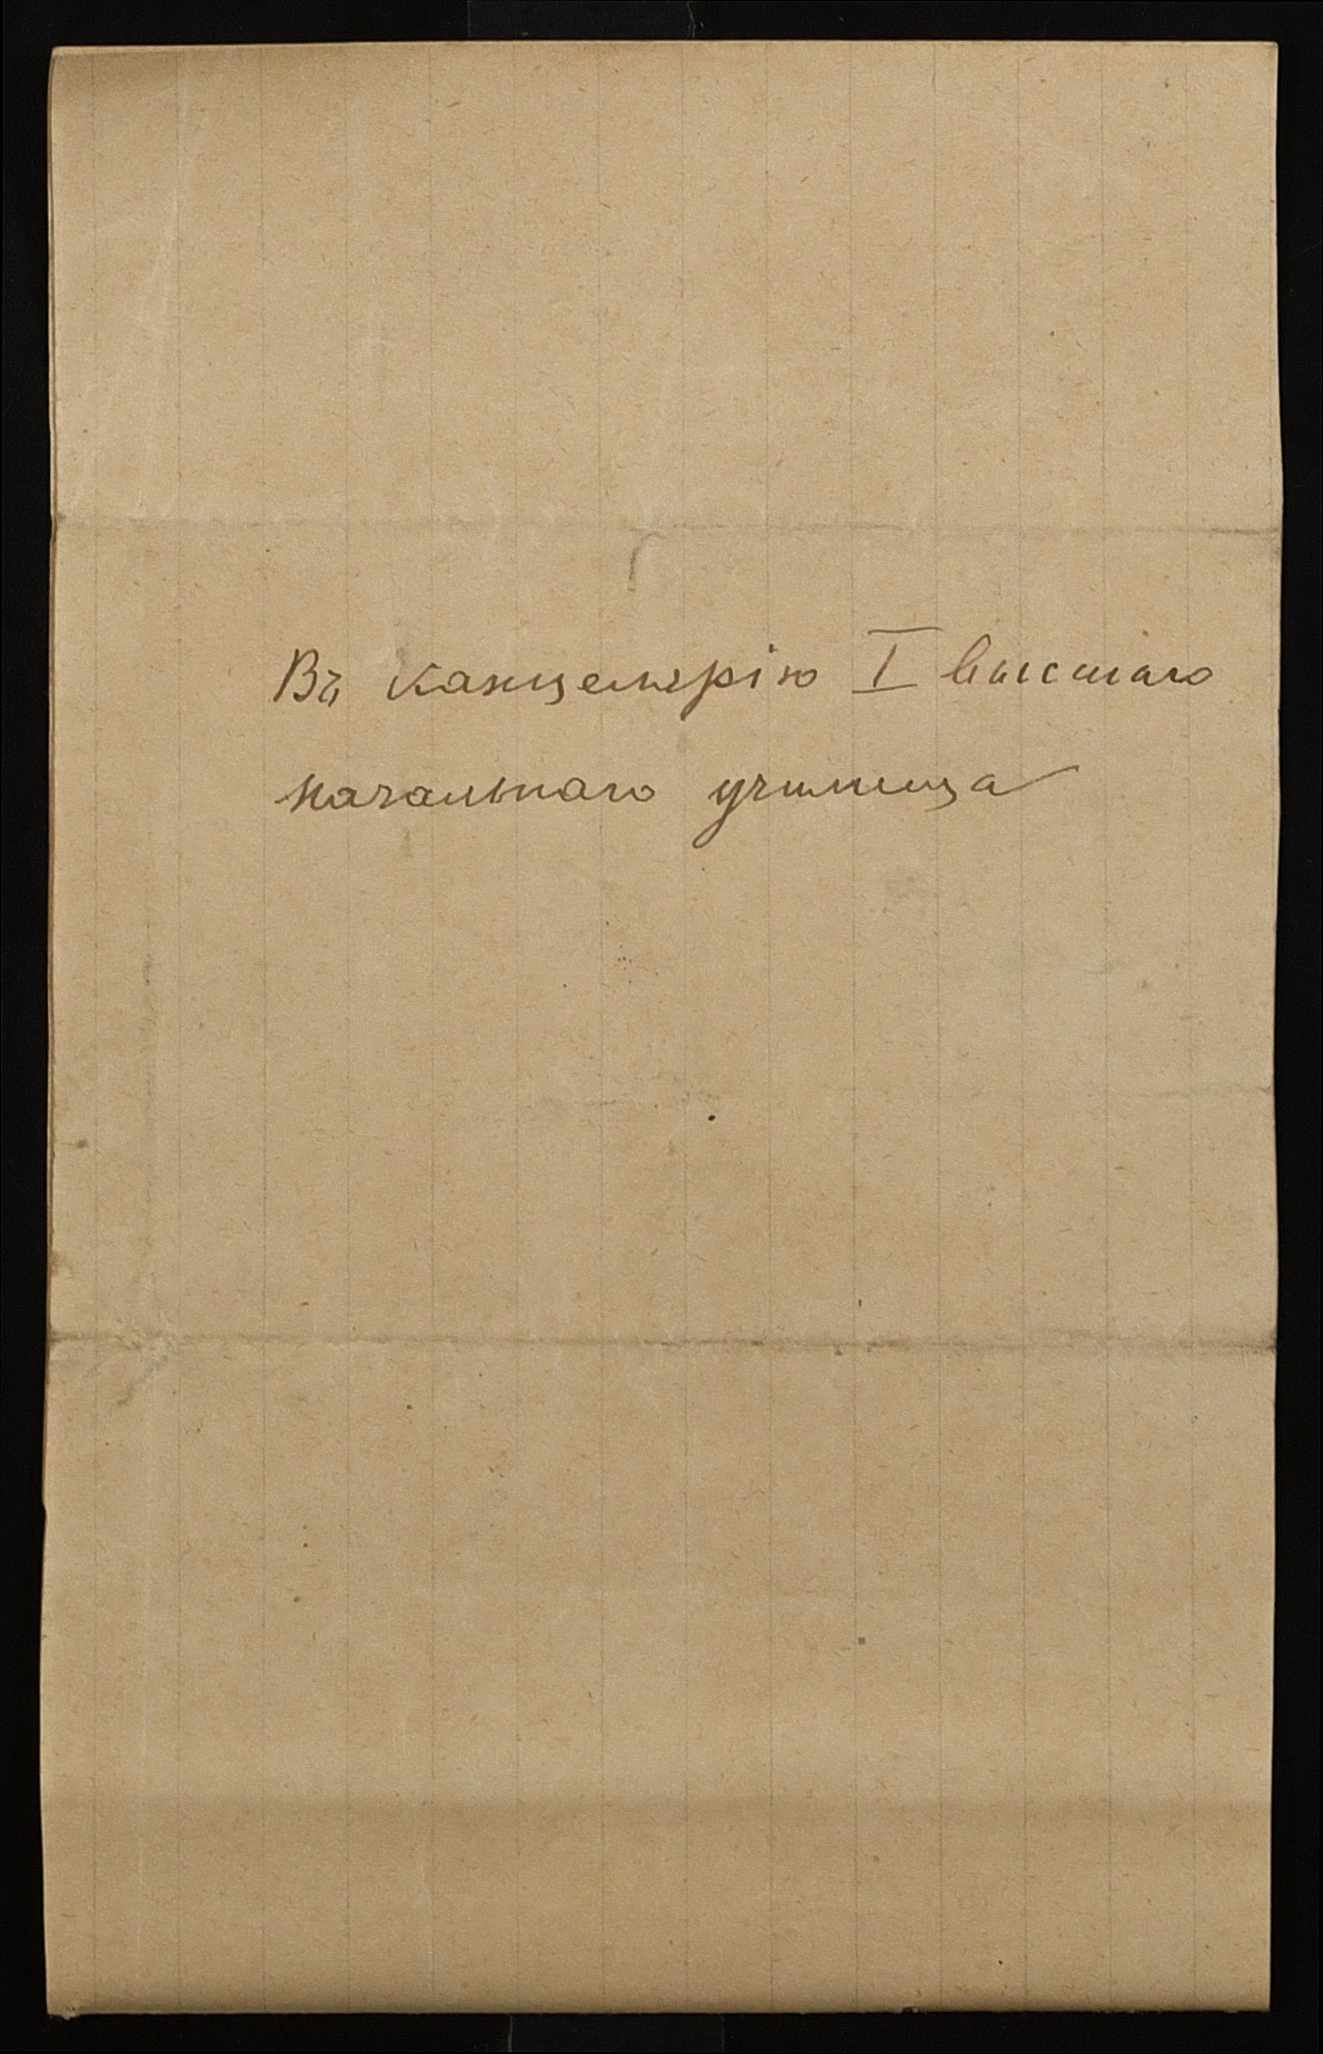 Въ канцелярію I высшаго
начальнаго училища